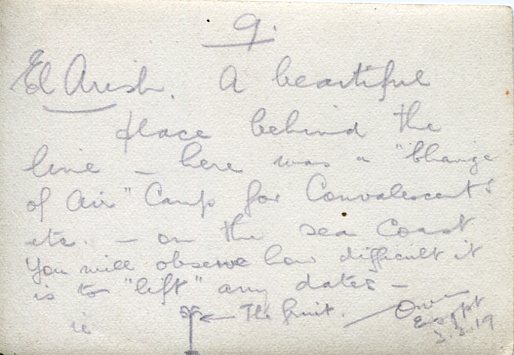 9.
El Arish. A beautiful
place behind the
line - here was a "Change
of Air" Camp for Convalescents
etc. - on the sea coast
You will observe how difficult it
is to "lift" any dates -
ie ← The fruit.
Egypt